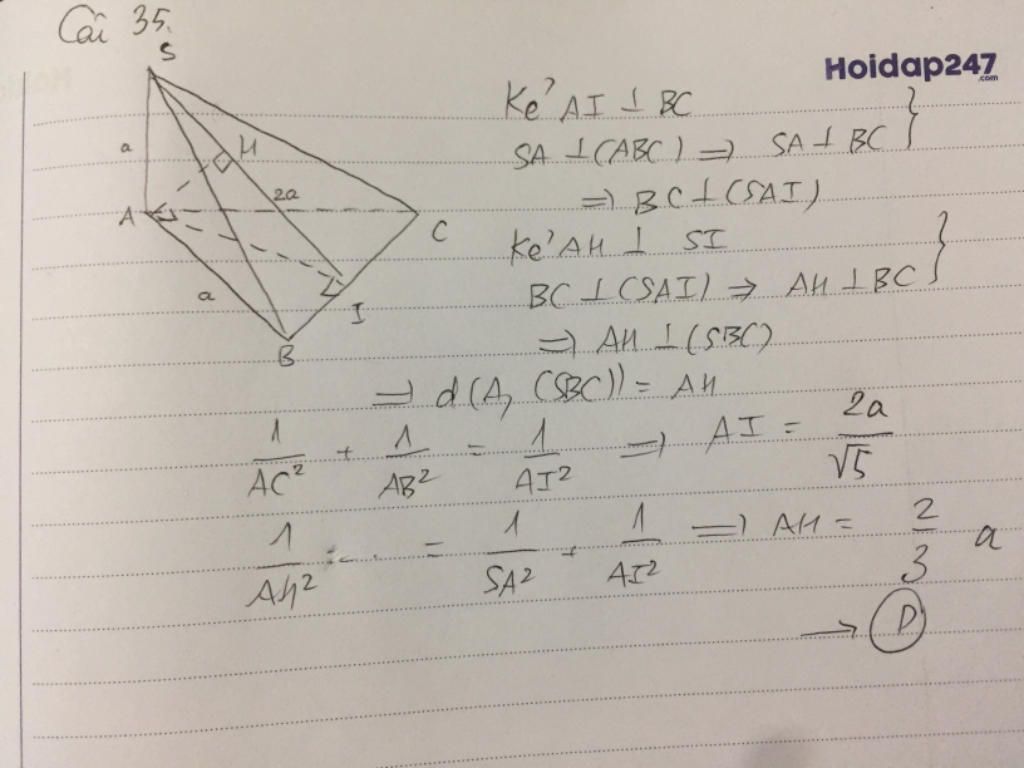 Câi 35.
Hoidap247
.com
S
a
H
2a
A
C
a
I
B
Kẻ AI ⊥ BC
SA ⊥ (ABC) ⇒ SA ⊥ BC }
⇒ BC ⊥ (SAI)
Kẻ AH ⊥ SI
BC ⊥ (SAI) ⇒ AH ⊥ BC }
⇒ AH ⊥ (SBC)
⇒ d(A, (SBC)) = AH
1/AC² + 1/AB² = 1/AI² ⇒ AI = 2a/√5
1/AH² = 1/SA² + 1/AI² ⇒ AH = 2/3 a
→ D